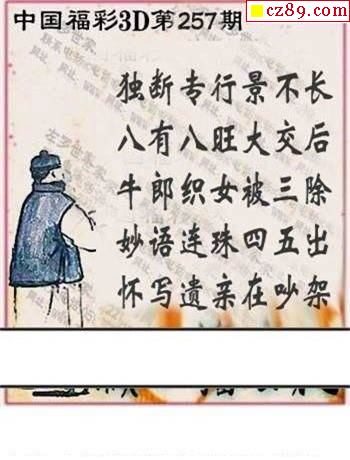 cz89.com
中国福彩3D第257期
独断专行景不长
八有八旺大交后
牛郎织女被三除
妙语连珠四五出
怀写遗亲在吵架